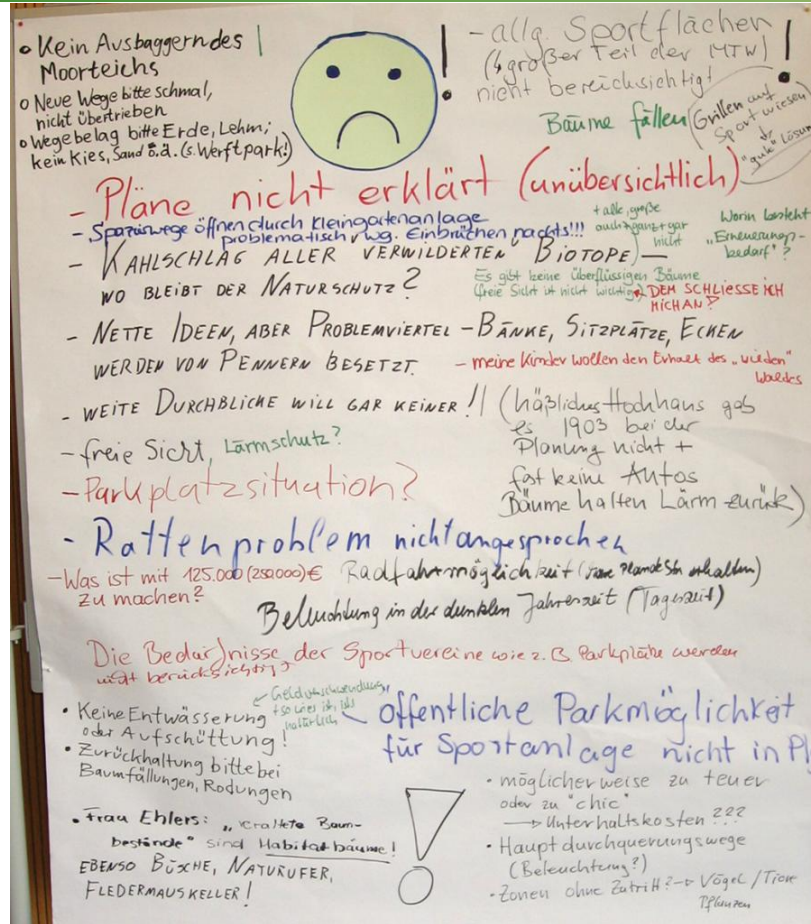 • Kein Ausbaggern des
Moorteichs
o Neue Wege bitte schmal,
nicht übertrieben
o Wegebelag bitte Erde, Lehm;
kein Kies, Sand o.ä. (s. Werftpark!)
!
- allg. Sportflächen
(↳ großer Teil der MTW)
nicht berücksichtigt
!
Bäume fällen
Grillen auf
Sportwiesen
↓
"gute" Lösung
- Pläne nicht erklärt (unübersichtlich)
- Spazierwege öffnen durch Kleingartenanlage
problematisch wg. Einbrüchen nachts!!!
+ alle, große
auch ganz + gar
nicht
Worin besteht
„Erneuerungs-
bedarf"?
- KAHLSCHLAG ALLER VERWILDERTEN BIOTOPE —
WO BLEIBT DER NATURSCHUTZ?
Es gibt keine überflüssigen Bäume
(freie Sicht ist nicht wichtig)
DEM SCHLIESSE ICH
MICH AN!
- NETTE IDEEN, ABER PROBLEMVIERTEL - BÄNKE, SITZPLÄTZE, ECKEN
WERDEN VON PENNERN BESETZT.
- meine Kinder wollen den Erhalt des „wilden"
Waldes
- WEITE DURCHBLICKE WILL GAR KEINER!!
(häßliches Hochhaus gab
es 1903 bei der
Planung nicht +
fast keine Autos
Bäume halten Lärm zurück)
- freie Sicht, Lärmschutz?
- Parkplatzsituation?
- Rattenproblem nicht angesprochen
- Was ist mit 125.000 (250.000) €
zu machen?
Radfahrmöglichkeit (erhalten)
Beleuchtung in der dunklen Jahreszeit (Tageszeit)
Die Bedürfnisse der Sportvereine wie z.B. Parkplätze werden
nicht berücksichtigt
• Keine Entwässerung
oder Aufschüttung!
← Geldverschwendung,
+ so wie es ist, ists
natürlich
• Zurückhaltung bitte bei
Baumfällungen, Rodungen
öffentliche Parkmöglichkeit
für Sportanlage nicht in Pl
• Frau Ehlers: „veraltete Baum-
bestände" sind Habitatbäume!
EBENSO BÜSCHE, NATURUFER,
FLEDERMAUSKELLER!
!
• möglicherweise zu teuer
oder zu "chic"
→ Unterhaltskosten ???
• Hauptdurchquerungswege
(Beleuchtung?)
• Zonen ohne Zutritt? → Vögel / Tiere
Pflanzen